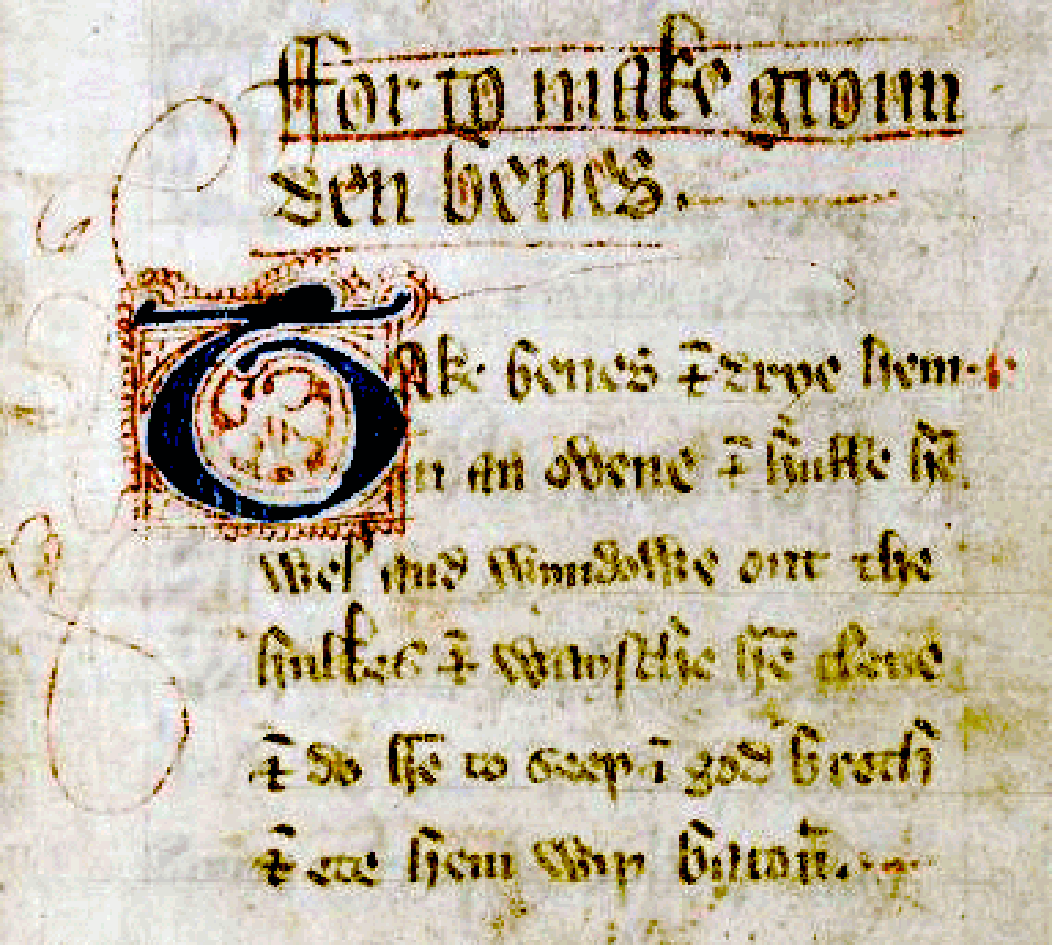 ffor to make groun
den benes.
Take benes & drye hem·
in an ovene & hulle hē
wel and wyndowe out the
hulkes & wayshe hē clene
& do hē to seeþ ī god broth
& ete hem wiþ bacon̄.